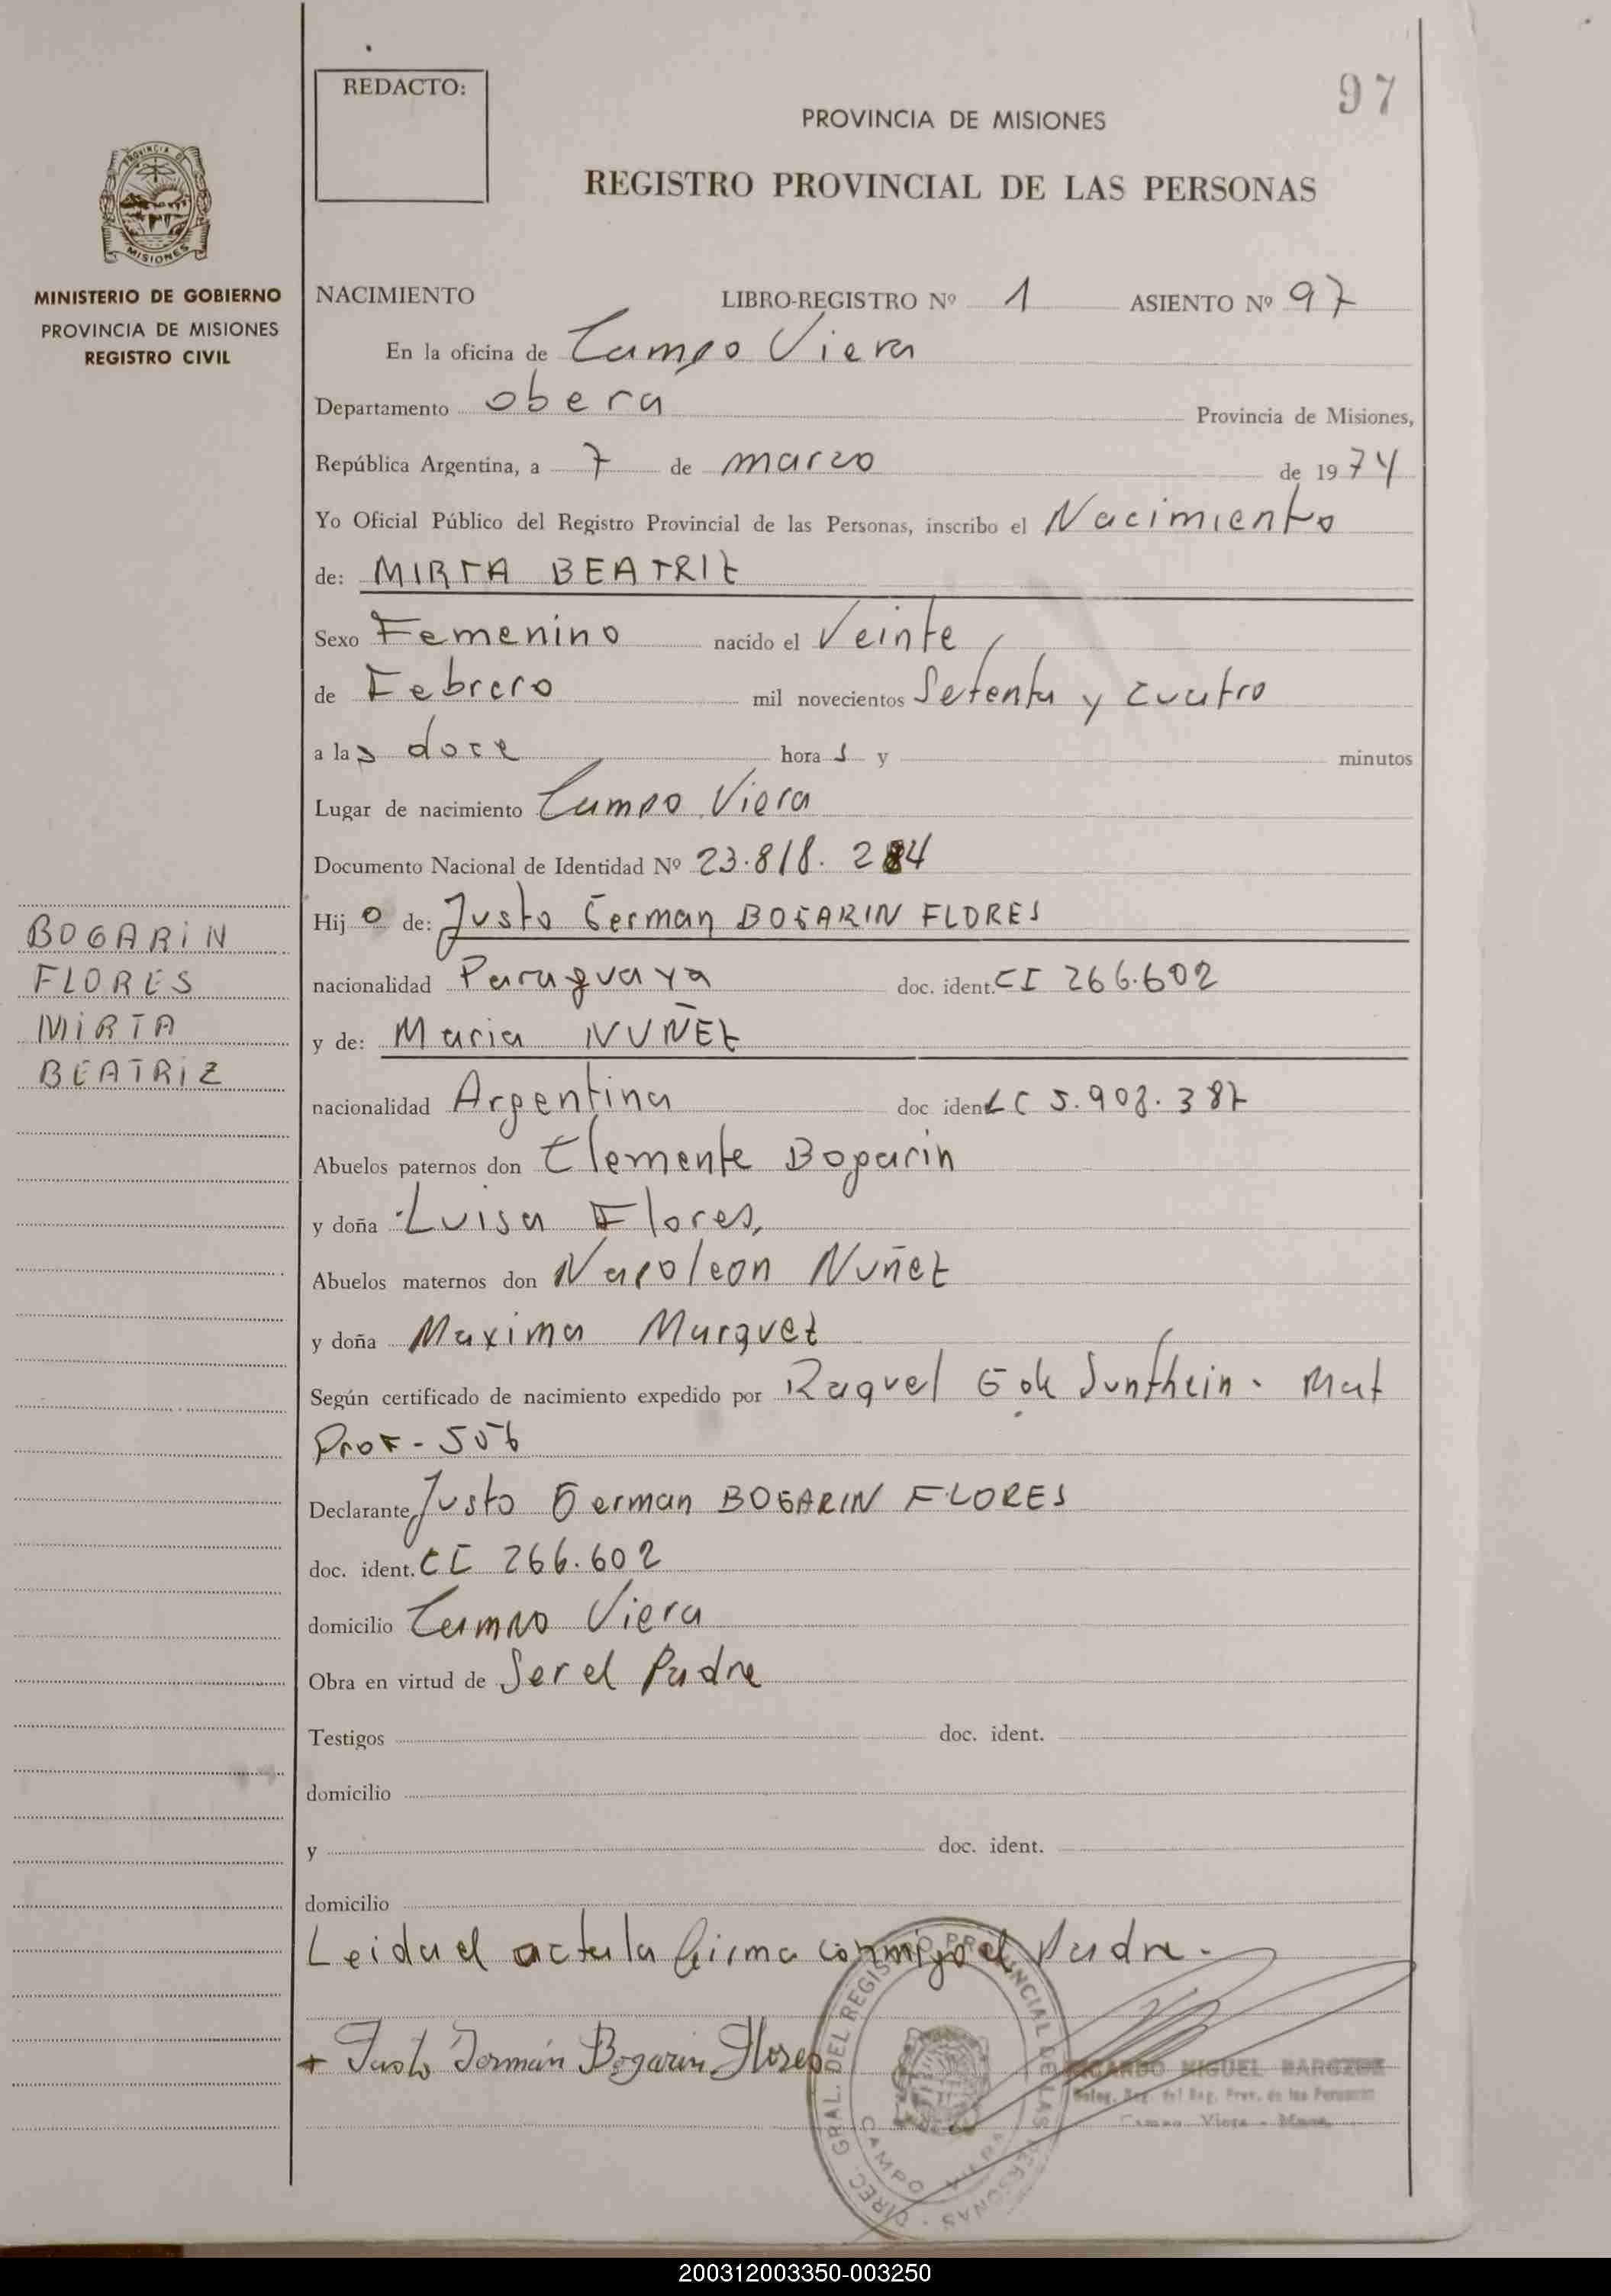 97
REDACTO:
PROVINCIA DE MISIONES
REGISTRO PROVINCIAL DE LAS PERSONAS
PROVINCIA DE
MISIONES
MINISTERIO DE GOBIERNO
PROVINCIA DE MISIONES
REGISTRO CIVIL
NACIMIENTO LIBRO-REGISTRO Nº 1 ASIENTO Nº 97
En la oficina de Campo Viera
Departamento obera Provincia de Misiones,
República Argentina, a 7 de marzo de 1974
Yo Oficial Público del Registro Provincial de las Personas, inscribo el Nacimiento
de: MIRTA BEATRIZ
Sexo Femenino nacido el Veinte
de Febrero mil novecientos Setenta y cuatro
a las doce horas y minutos
Lugar de nacimiento Campo Viera
Documento Nacional de Identidad Nº 23.818.
Hijo de: Justo German BOGARIN FLORES
nacionalidad Paraguaya doc. ident. CI 266.602
y de: Maria NUÑEZ
nacionalidad Argentina doc ident LC
Abuelos paternos don Clemente Bogarin
y doña Luisa Flores,
Abuelos maternos don Napoleon Nuñez
y doña Maxima Marquez
Según certificado de nacimiento expedido por Raquel G de Sunthein. Mat
Prof - 506
Declarante Justo German BOGARIN FLORES
doc. ident. CI 266.602
domicilio Campo Viera
Obra en virtud de Ser el Padre
Testigos doc. ident.
domicilio
y doc. ident.
domicilio
Leida el acta la firma conmigo el Padre.
+ Justo Germán Bogarin Flores
BOGARIN
FLORES
MIRTA
BEATRIZ
DIREC. GRAL. DEL REGISTRO PROVINCIAL DE LAS PERSONAS
CAMPO VIERA
RICARDO MIGUEL
Deleg. del Reg. Prov. de las Personas
Campo Viera - Mnes.
200312003350-003250